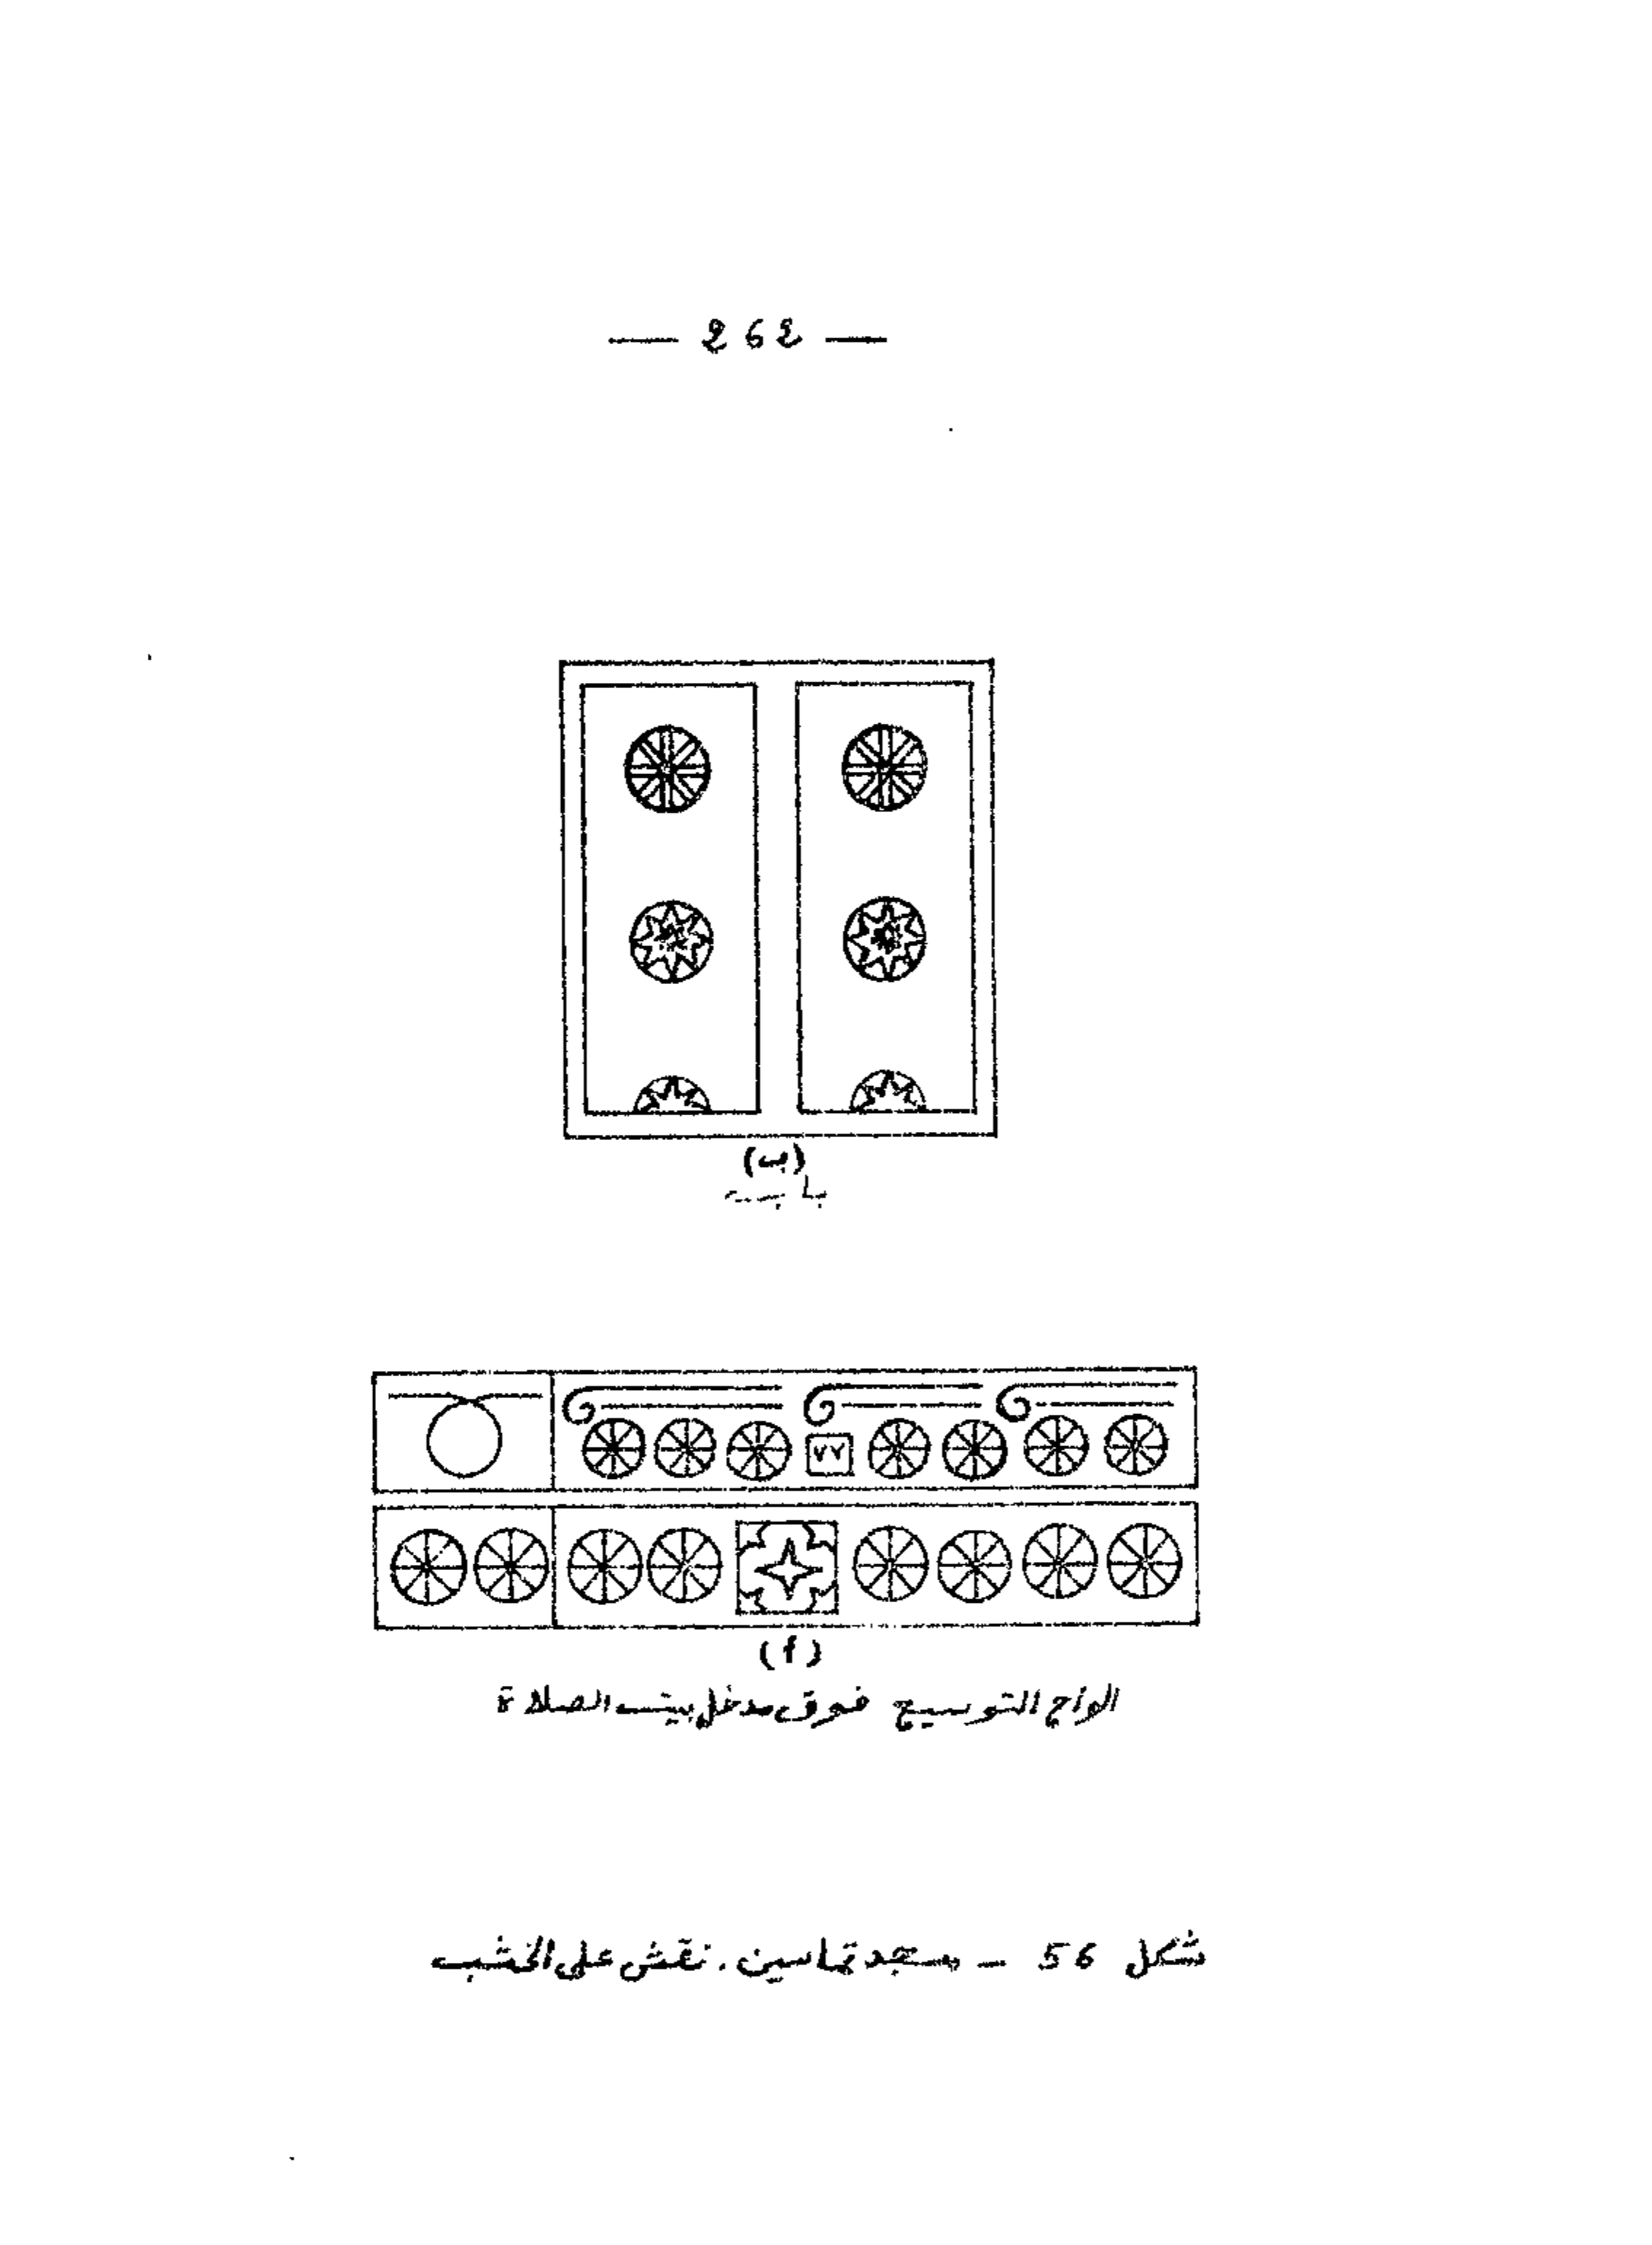 — 262 —
(ب)
باب
٧٧
(أ)
الواح التوسيع فوق مدخل بيت الصلاة
شكل 56 – مسجد تماسين . نقش على الخشب